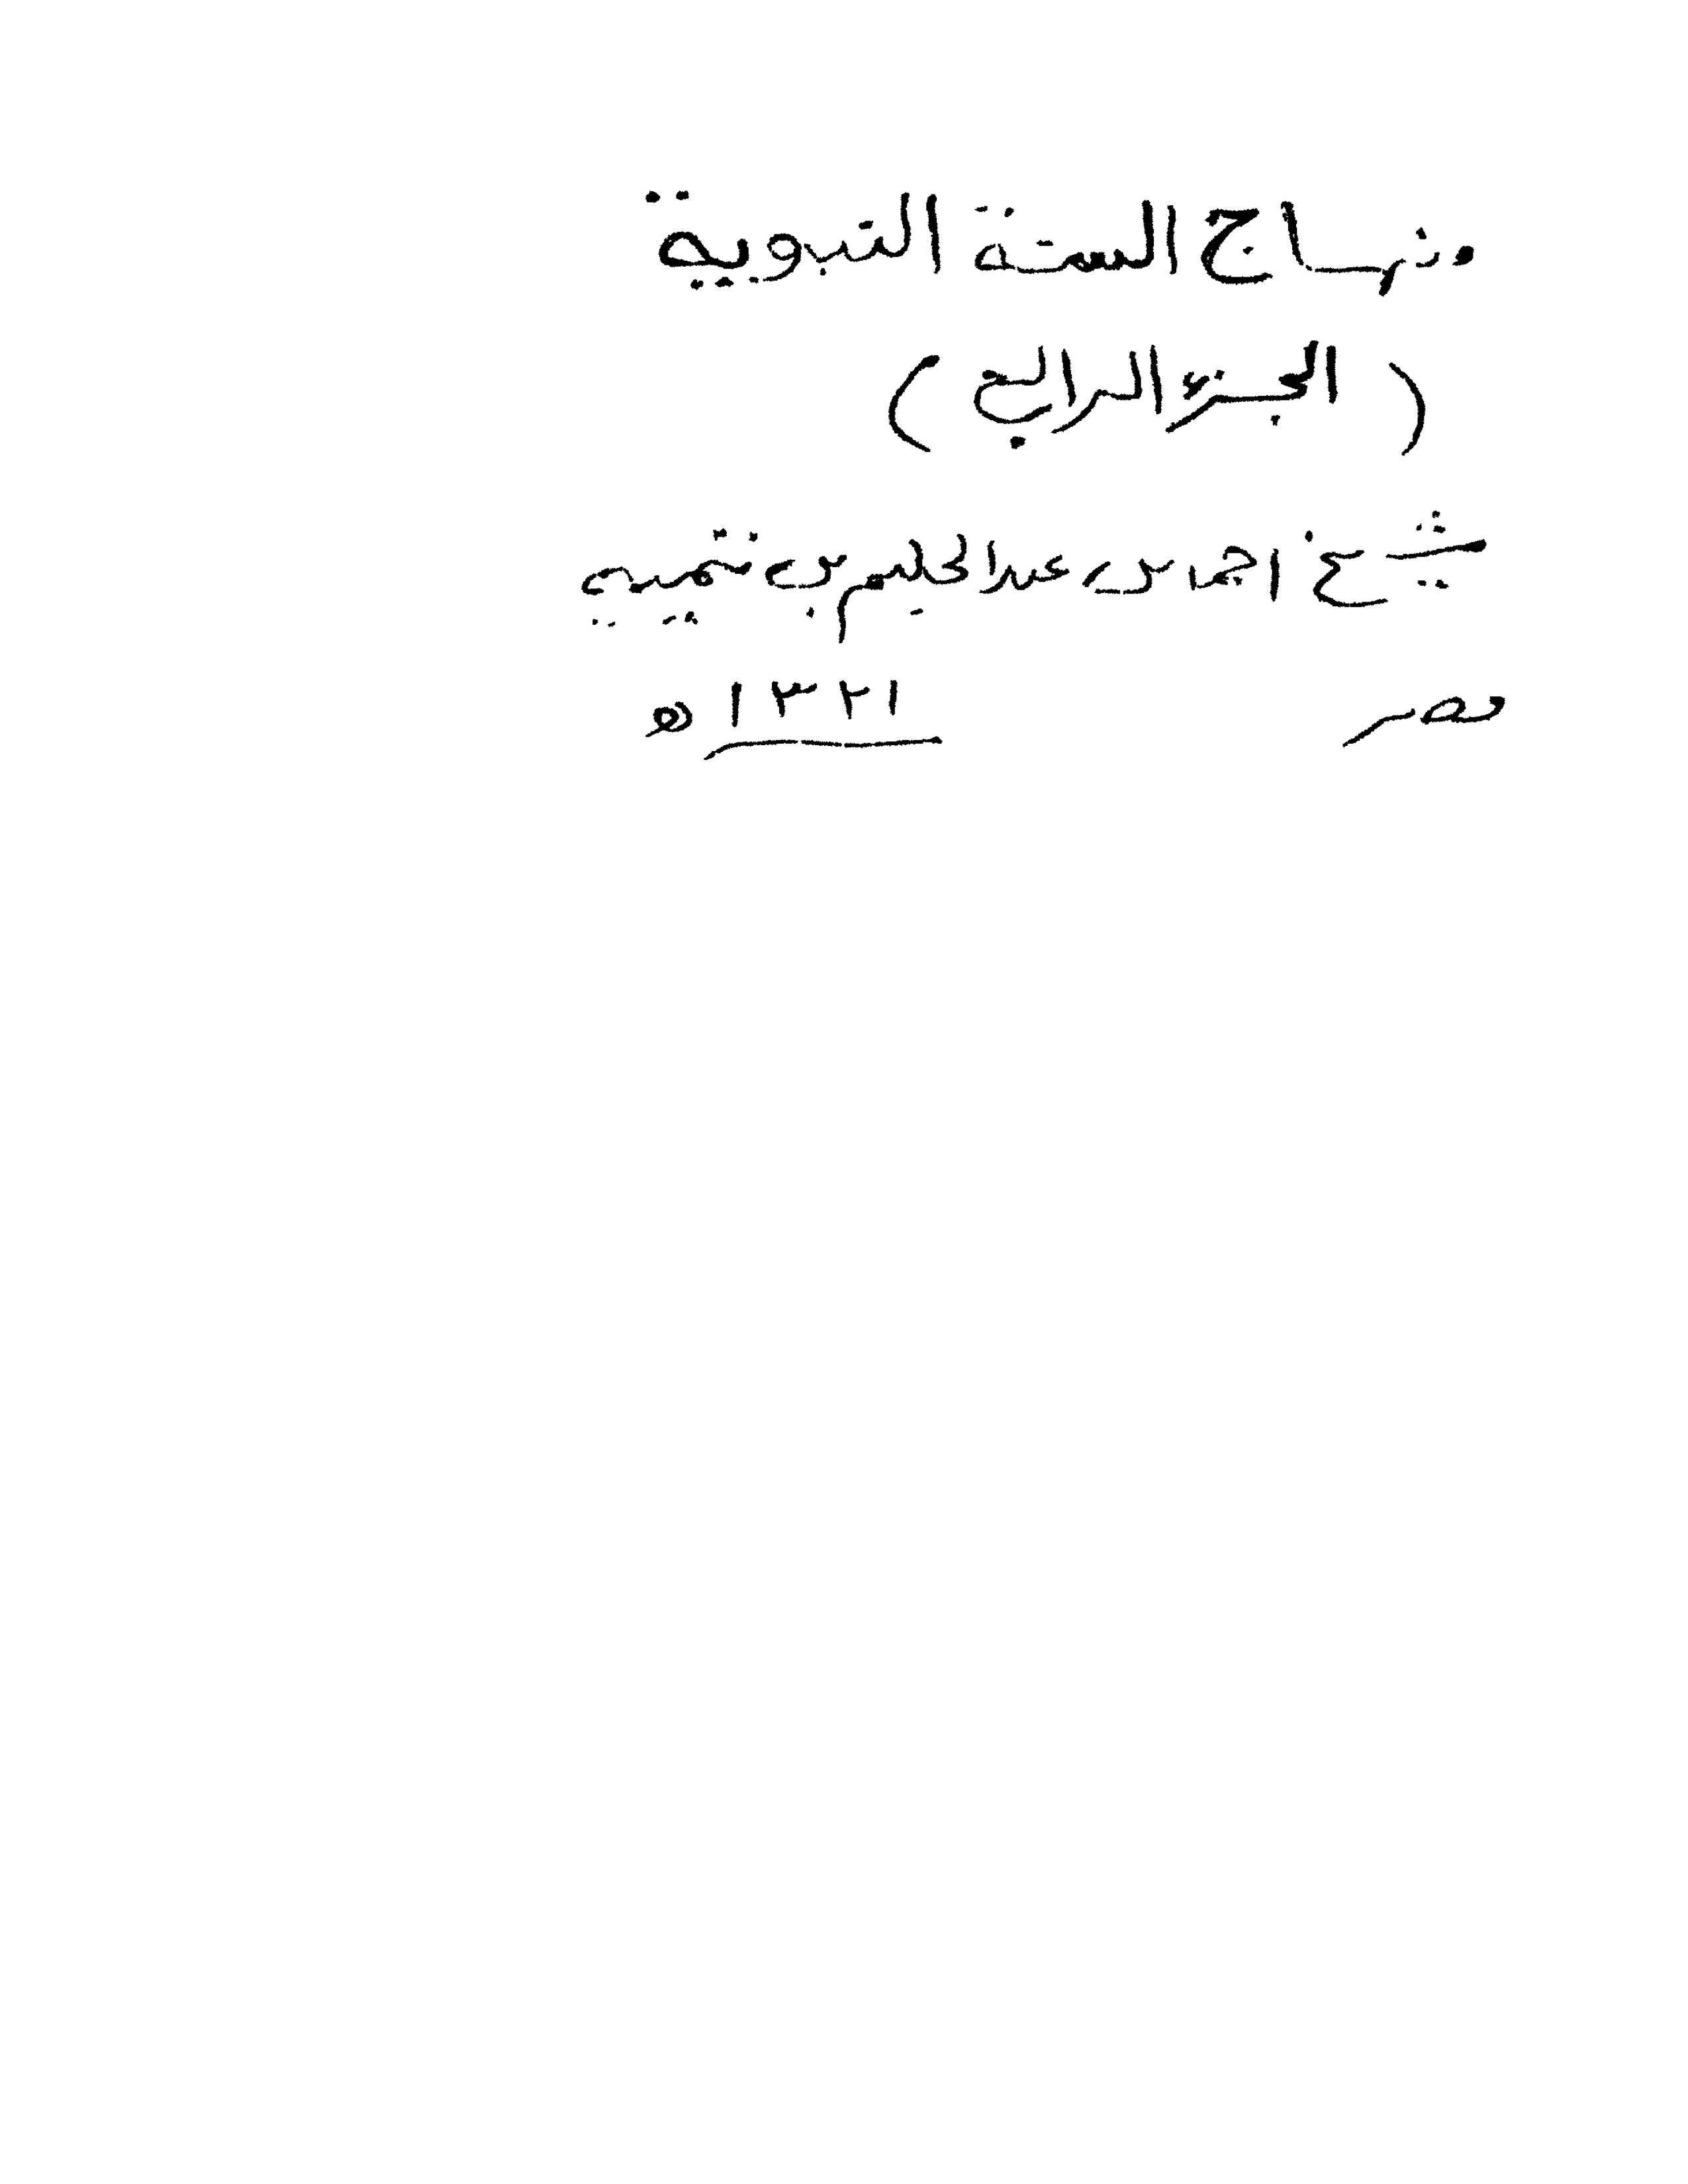 منهاج السنة النبوية
( الجزء الرابع )
شيخ احمد بن عبدالحليم بن تيميه
مصر ١٣٢١ ھ